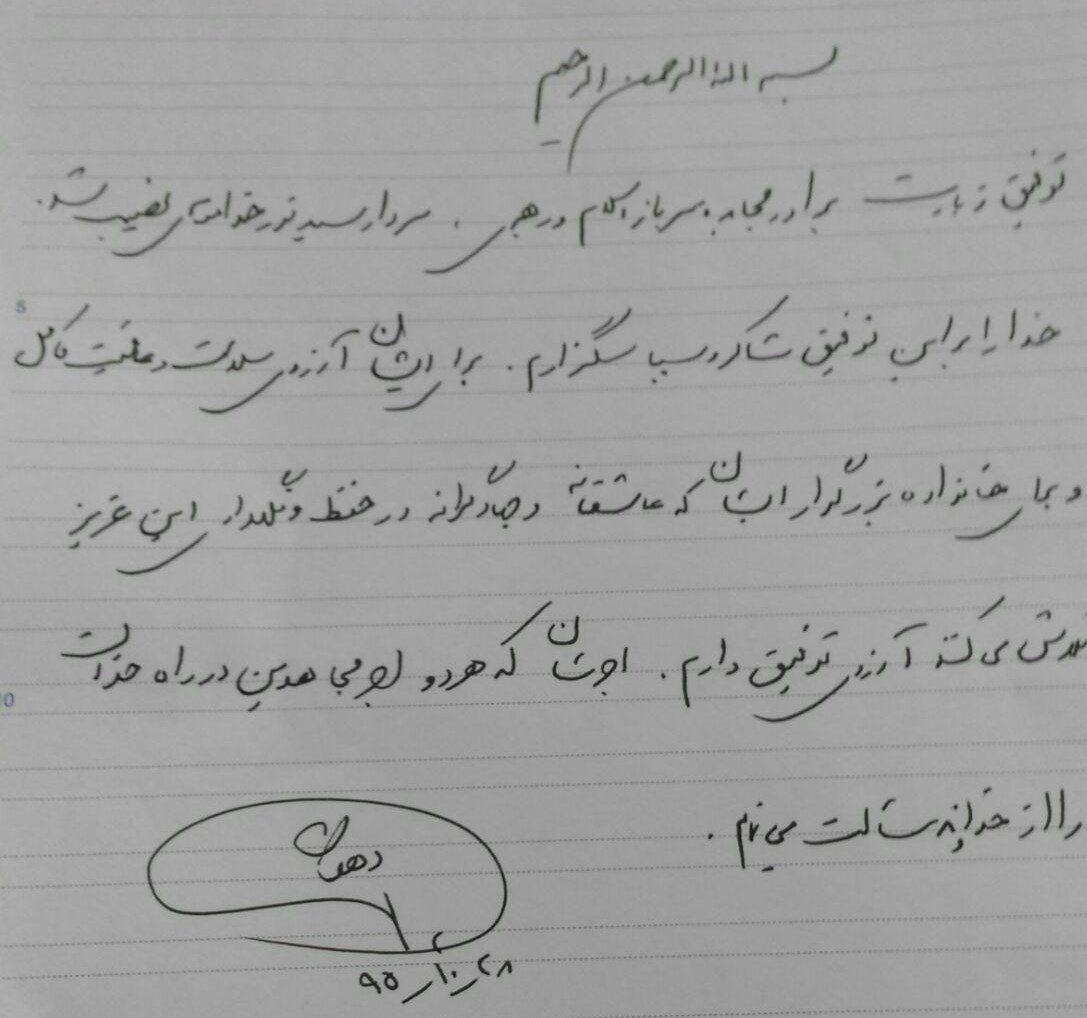 بسم الله الرحمن الرحیم
توفیق زیارت برادر مجاهد، سرباز اسلام و رهبری، سردار سید نور خدا موسوی نصیب شد.
5
خدا را بر این توفیق شاکر و سپاسگزارم. برای ایشان آرزوی سلامت و عافیت کامل
و برای خانواده بزرگوار ایشان که عاشقانه و جهادگرانه در حفظ و نگهداری این عزیز
تلاش می کنند آرزوی توفیق دارم. اجرشان که همردیف اجر مجاهدین در راه خداست
10
را از خداوند مسئلت می نمایم.
دهقان
۹۵/۱۰/۲۸